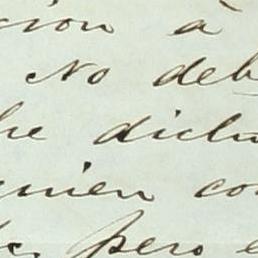 cion à
No deb
he dich
quien co
pero e